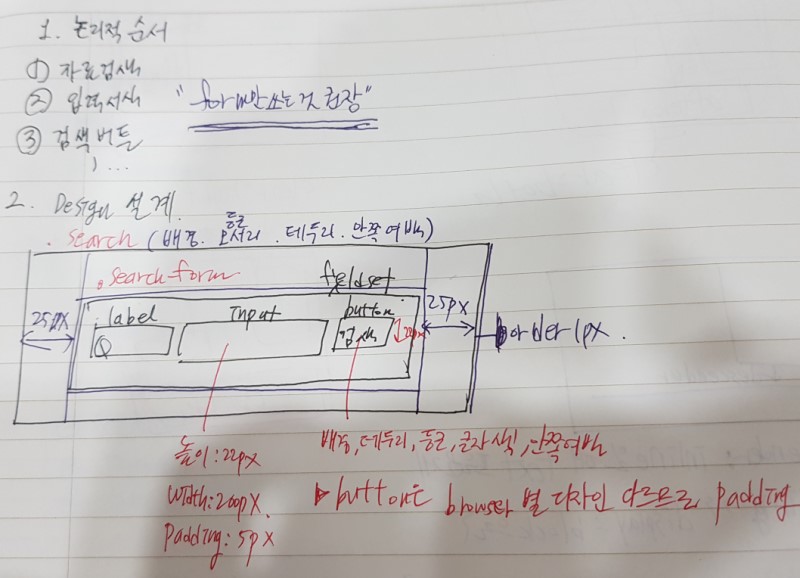 1. 논리적 순서
① 자료검색
② 입력서식 "form만 쓰는 것 권장"
③ 검색버튼
) ...
2. Design 설계.
.search (배경. 둥근 모서리. 테두리. 안쪽여백)
.search-form fieldset
25px .label Input button 25px
Q 검색 22px border 1px.
높이:22px
width:200px.
Padding: 5px
배경, 테두리, 둥근, 글자색, 안쪽여백
▷button은 browser 별 디자인 다르므로 padding